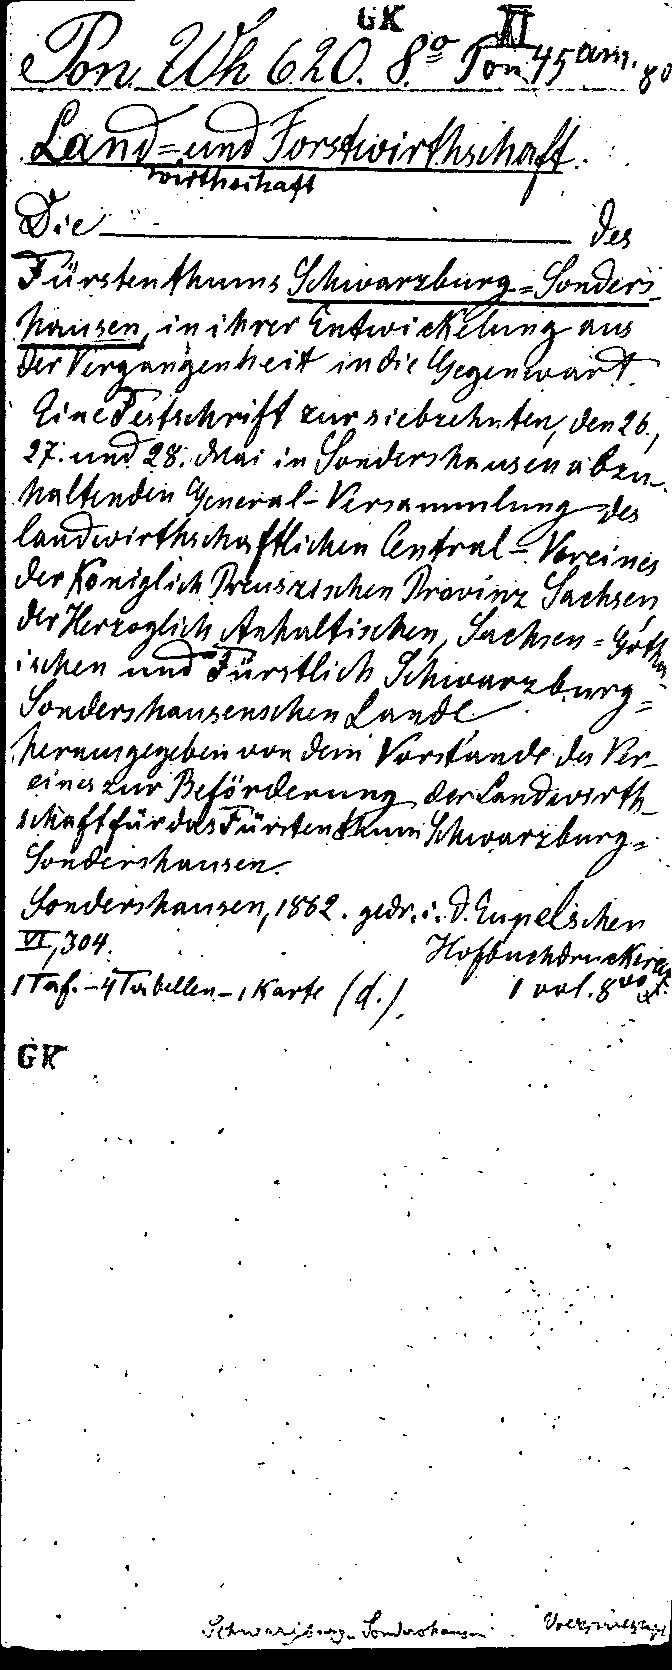 GK XI
Pon. Wh 620. 8.º Pon. 45 am. 80
Land- und Forstwirthschaft.
wirthschaft
Die des
Fürstenthums Schwarzburg-Sonders-
hausen, in ihrer Entwickelung aus
der Vergangenheit in die Gegenwart.
Eine Festschrift zur siebzehnten, den 26.,
27. und 28. Mai in Sondershausen abzu-
haltenden General-Versammlung des
landwirthschaftlichen Central-Vereines
der Königlich Preuszischen Provinz Sachsen,
der Herzoglich Anhaltischen, Sachsen-Gotha-
ischen und Fürstlich Schwarzburg-
Sondershausenschen Lande
herausgegeben von dem Vorstande des Ver-
eines zur Beförderung der Landwirth-
schaft für das Fürstenthum Schwarzburg-
Sondershausen.
Sondershausen, 1882. gedr. i. d. Eupelschen
VI, 304. Hofbuchdruckerei
1 Taf. - 4 Tabellen - 1 Karte (d.). 1 vol. 8vo
GK
Schwarzburg-Sondershausen